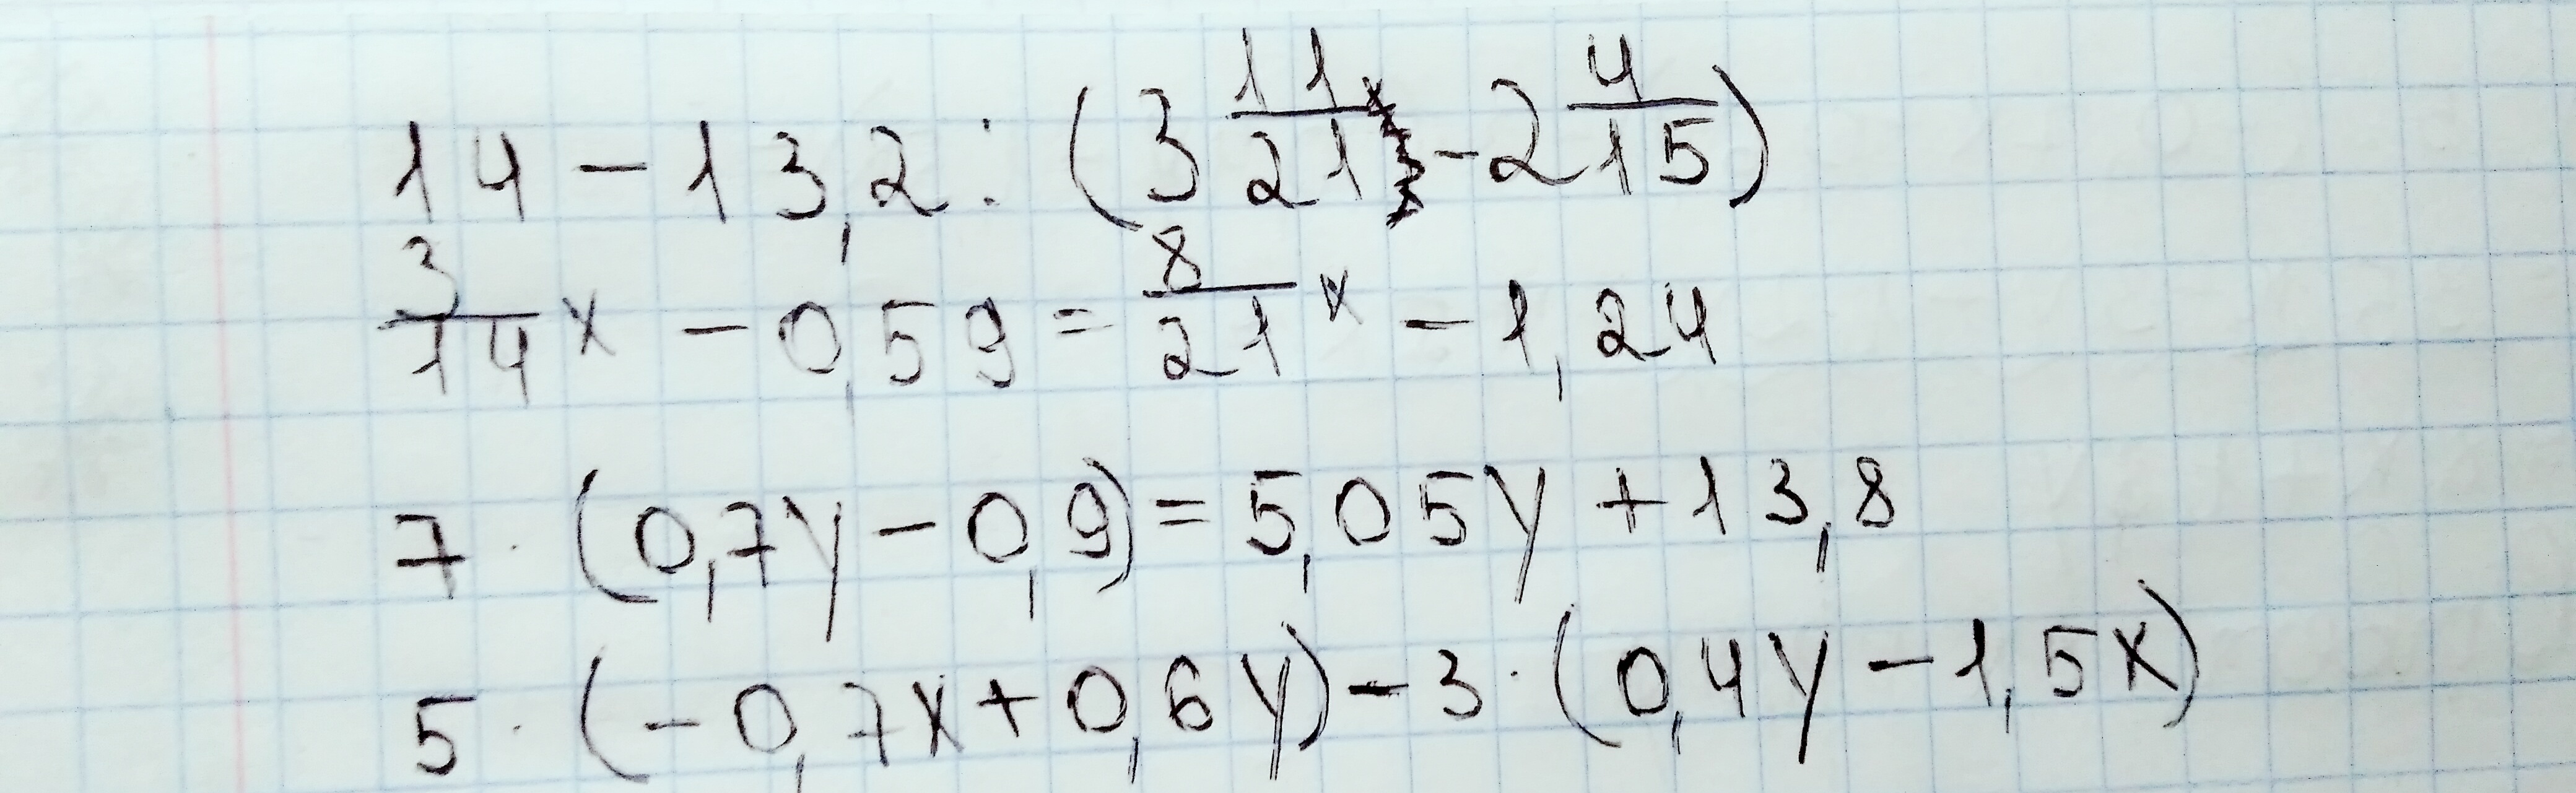 14 - 13,2 : (3 11/21 - 2 4/15)
3/14 x - 0,59 = 8/21 x - 1,24
7 · (0,7y - 0,9) = 5,05y + 13,8
5 · (-0,7x + 0,6y) - 3 · (0,4y - 1,5x)